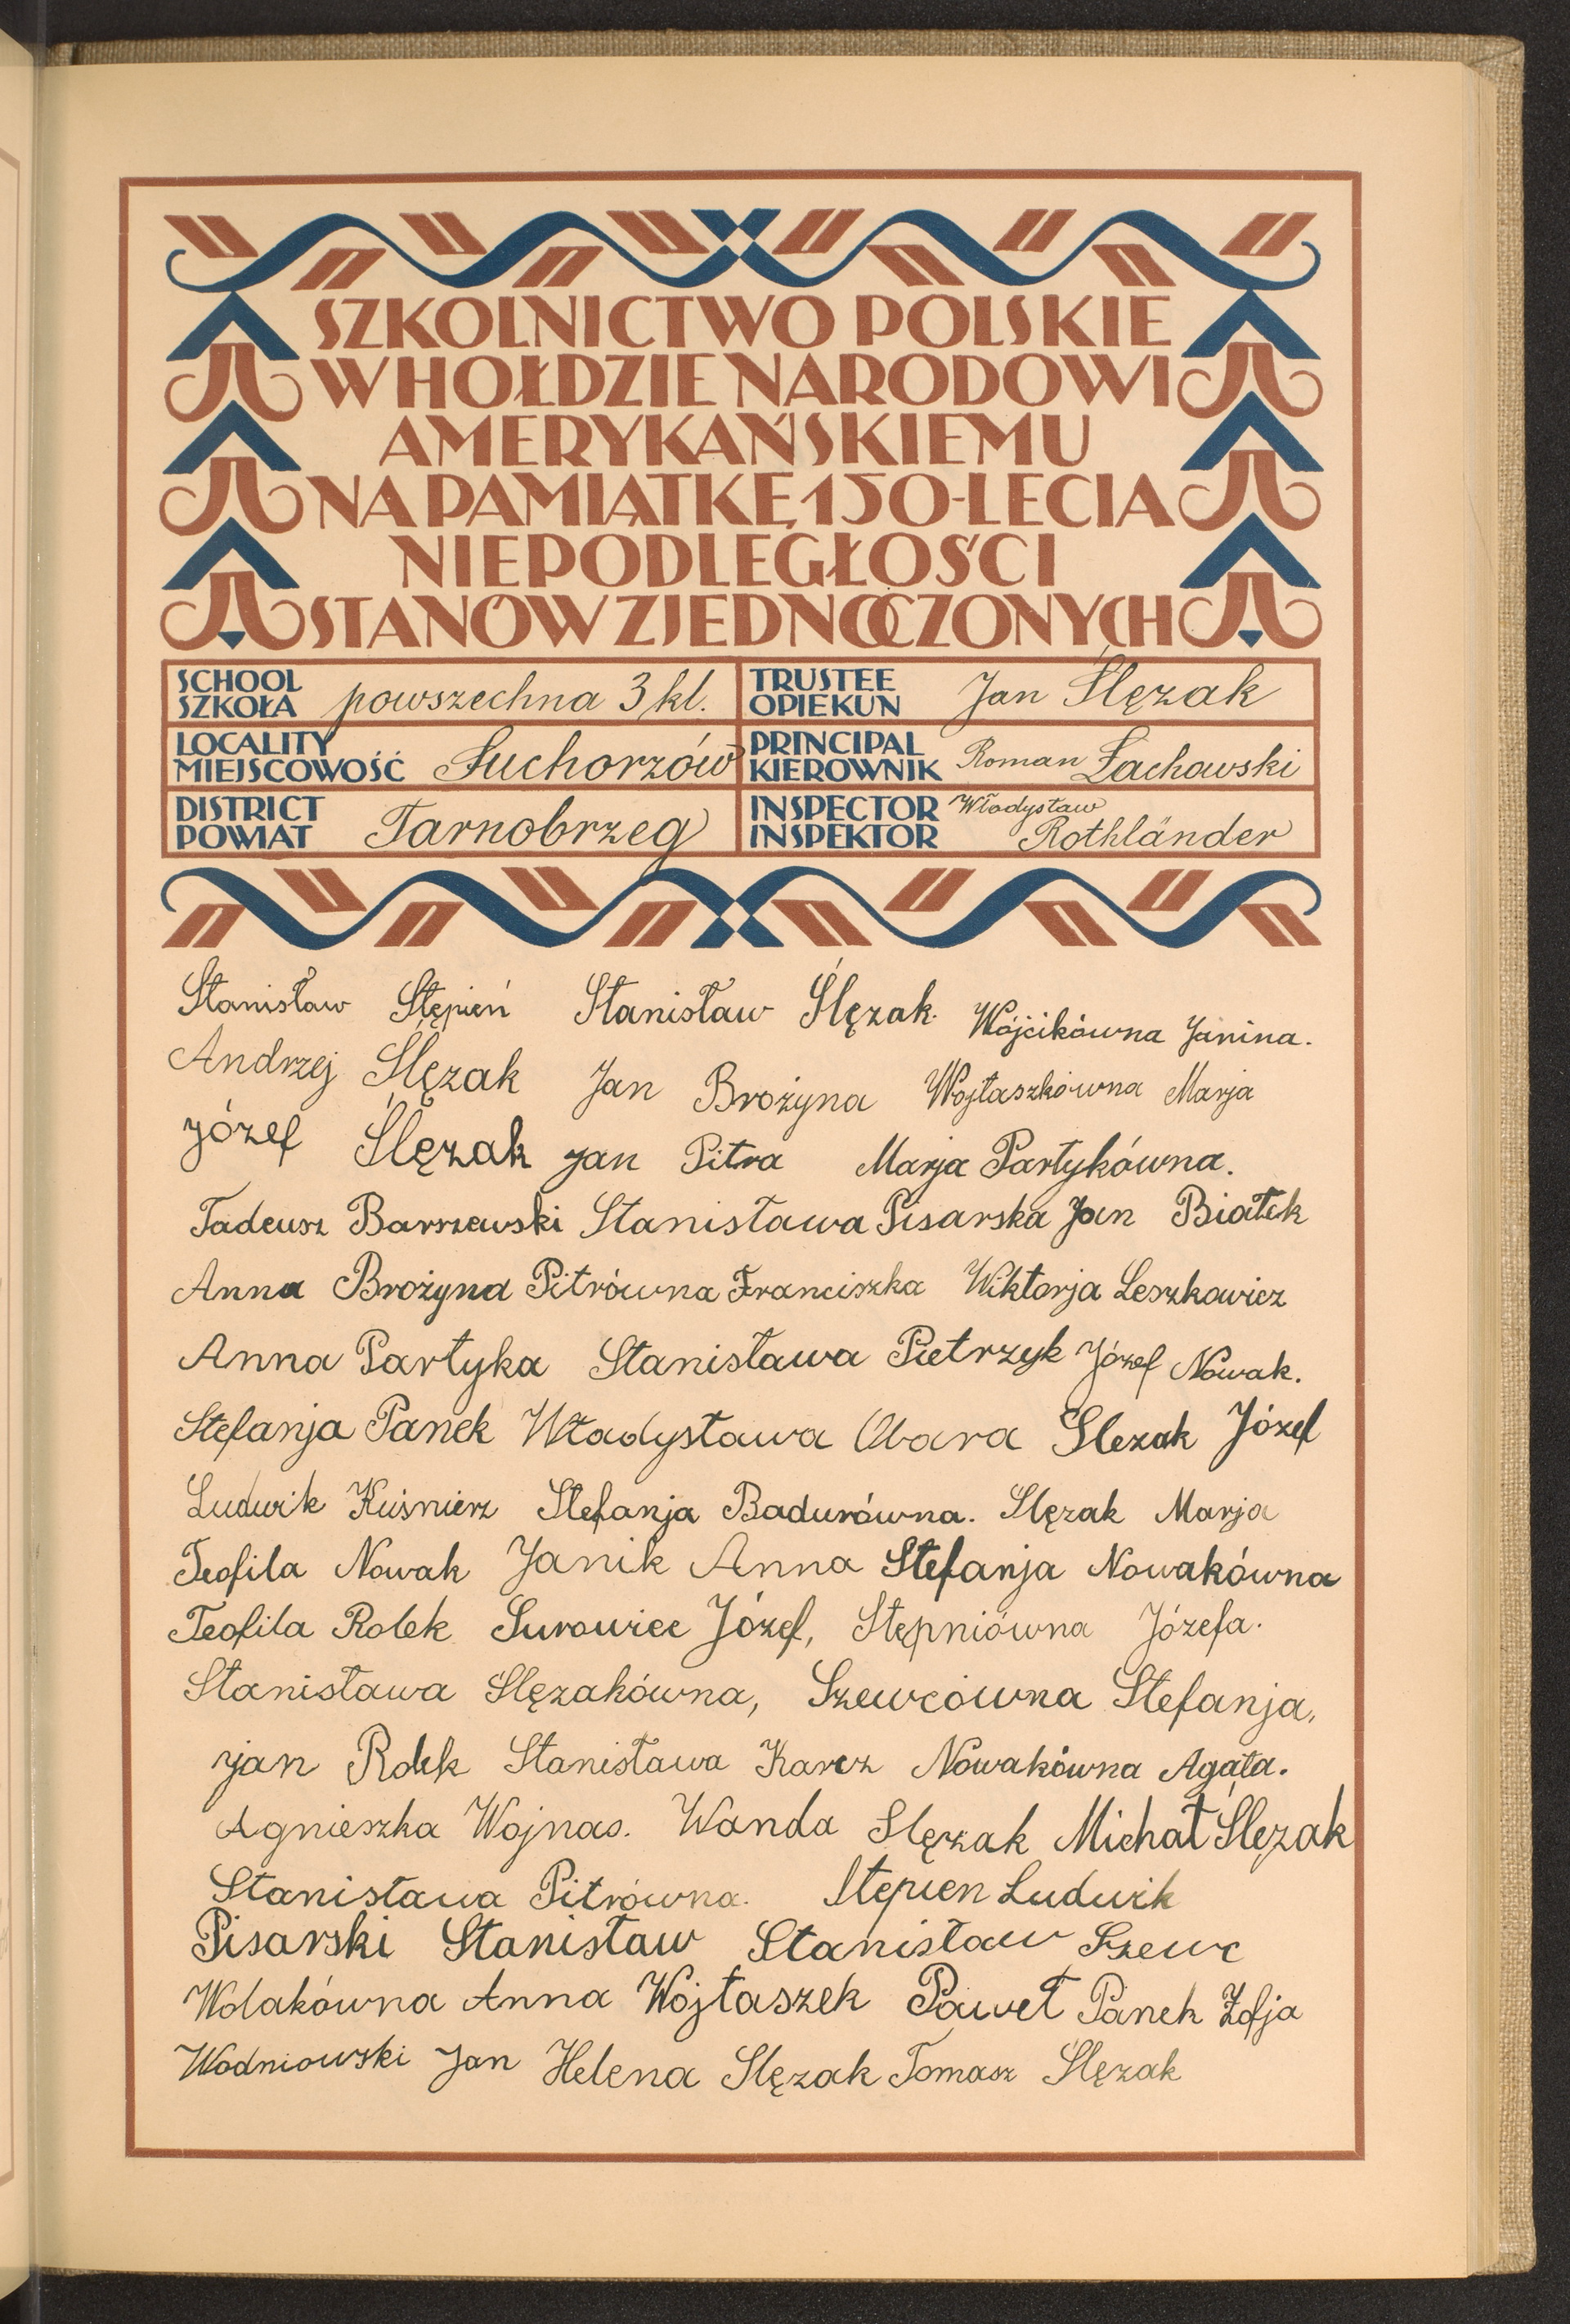 SZKOLNICTWO POLSKIE
W HOŁDZIE NARODOWI
AMERYKAŃSKIEMU
NA PAMIĄTKĘ 150-LECIA
NIEPODLEGŁOŚCI
STANÓW ZJEDNOCZONYCH
SCHOOL
SZKOŁA powszechna 3 kl.
TRUSTEE
OPIEKUN Jan Ślęzak
LOCALITY
MIEJSCOWOŚĆ Suchorzów
PRINCIPAL
KIEROWNIK Roman Łachowski
DISTRICT
POWIAT Tarnobrzeg
INSPECTOR Władysław
INSPEKTOR Rothländer
Stanisław Stępień Stanisław Ślęzak. Wójcikówna Janina.
Andrzej Ślęzak Jan Brożyna Wojtaszkówna Marja
Józef Ślęzak Jan Pitra Marja Partykówna.
Tadeusz Barszewski Stanisława Pisarska Jan Białek
Anna Brożyna Pitrówna Franciszka Wiktorja Leszkowicz
Anna Partyka Stanisława Pietrzyk Józef Nowak.
Stefanja Panek Władysława Obara Slezak Józef
Ludwik Kuśnierz Stefanja Badurówna. Slęzak Marja
Teofila Nowak Janik Anna Stefanja Nowakówna
Teofila Rolek Surowiec Józef, Stępniówna Józefa.
Stanisława Slęzakówna, Szewcówna Stefanja,
Jan Rolek Stanisława Karcz Nowakówna Agata.
Agnieszka Wojnas. Wanda Slęzak Michał Ślęzak
Stanisława Pitrówna. Stępien Ludwik
Pisarski Stanisław Stanisław Szewc
Wolakówna Anna Wojtaszek Paweł Panek Zofja
Wodniowski Jan Helena Slęzak Tomasz Slęzak